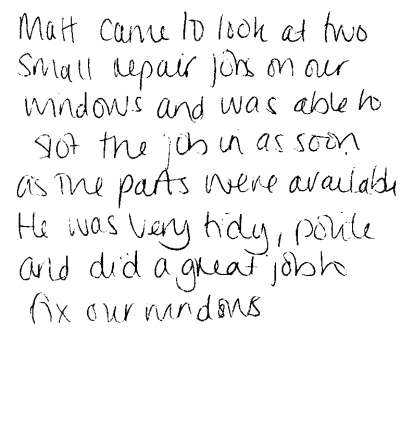 Matt came to look at two
small repair jobs on our
windows and was able to
slot the job in as soon
as the parts were available
He was very tidy, polite
and did a great job to
fix our windows